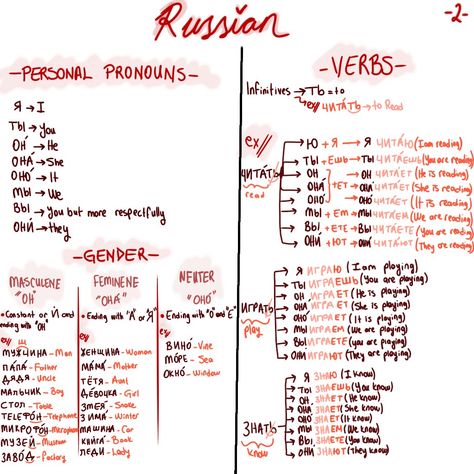 Russian
-2-
-PERSONAL PRONOUNS-
Я → I
ТЫ → you
ОН → He
ОНА́ → She
ОНО́ → It
МЫ → We
ВЫ → You but more respectfully
ОНИ́ → they
-GENDER-
MASCULENE
"ОН"
• Constant or Й and
ending with "ОН"
ex//
МУЖЧИНА - Man
ПА́ПА - Father
ДЯ́ДЯ - Uncle
МАЛЬЧИК - Boy
СТОЛ - Table
ТЕЛЕФО́Н - Telephone
МИКРОФО́Н - Microphone
МУЗЕ́Й - Museum
ЗАВО́Д - Factory
FEMINENE
"ОНА́"
• Ending with "А" or "Я"
ex//
ЖЕ́НЩИНА - Woman
МА́МА - Mother
ТЁТЯ - Aunt
ДЕ́ВОЧКА - Girl
ЗМЕЯ́ - Snake
ЗИМА́ - Winter
МАШИ́НА - Car
КНИ́ГА - Book
ЛЕ́ДИ - Lady
NEUTER
"ОНО́"
• Ending with "О" and "Е"
ex//
ВИНО́ - Vine
МО́РЕ - Sea
ОКНО́ - Window
-VERBS-
Infinitives → ТЬ = to
ex// ЧИТА́ТЬ → to Read
ex//
ЧИТА́ТЬ
read
Ю + Я → Я ЧИТА́Ю (I am reading)
ТЫ + ЕШЬ → ТЫ ЧИТА́ЕШЬ (You are reading)
ОН → ОН ЧИТА́ЕТ (He is reading)
ОНА́ + ЕТ → ОНА́ ЧИТА́ЕТ (She is reading)
ОНО́ → ОНО́ ЧИТА́ЕТ (It is reading)
МЫ + ЕМ → МЫ ЧИТА́ЕМ (We are reading)
ВЫ + ЕТЕ → ВЫ ЧИТА́ЕТЕ (You are reading)
ОНИ́ + ЮТ → ОНИ́ ЧИТА́ЮТ (They are reading)
ИГРА́ТЬ
play
Я ИГРАЮ (I am playing)
ТЫ ИГРАЕШЬ (You are playing)
ОН ИГРАЕТ (He is playing)
ОНА́ ИГРАЕТ (She is playing)
ОНО́ ИГРАЕТ (It is playing)
МЫ ИГРАЕМ (We are playing)
ВЫ ИГРАЕТЕ (you are playing)
ОНИ ИГРАЮТ (They are playing)
ЗНАТЬ
know
Я ЗНА́Ю (I know)
ТЫ ЗНА́ЕШЬ (You know)
ОН ЗНА́ЕТ (He know)
ОНА́ ЗНА́ЕТ (She know)
ОНО́ ЗНА́ЕТ (It know)
МЫ ЗНА́ЕМ (We know)
ВЫ ЗНА́ЕТЕ (You know)
ОНИ́ ЗНА́ЮТ (They know)